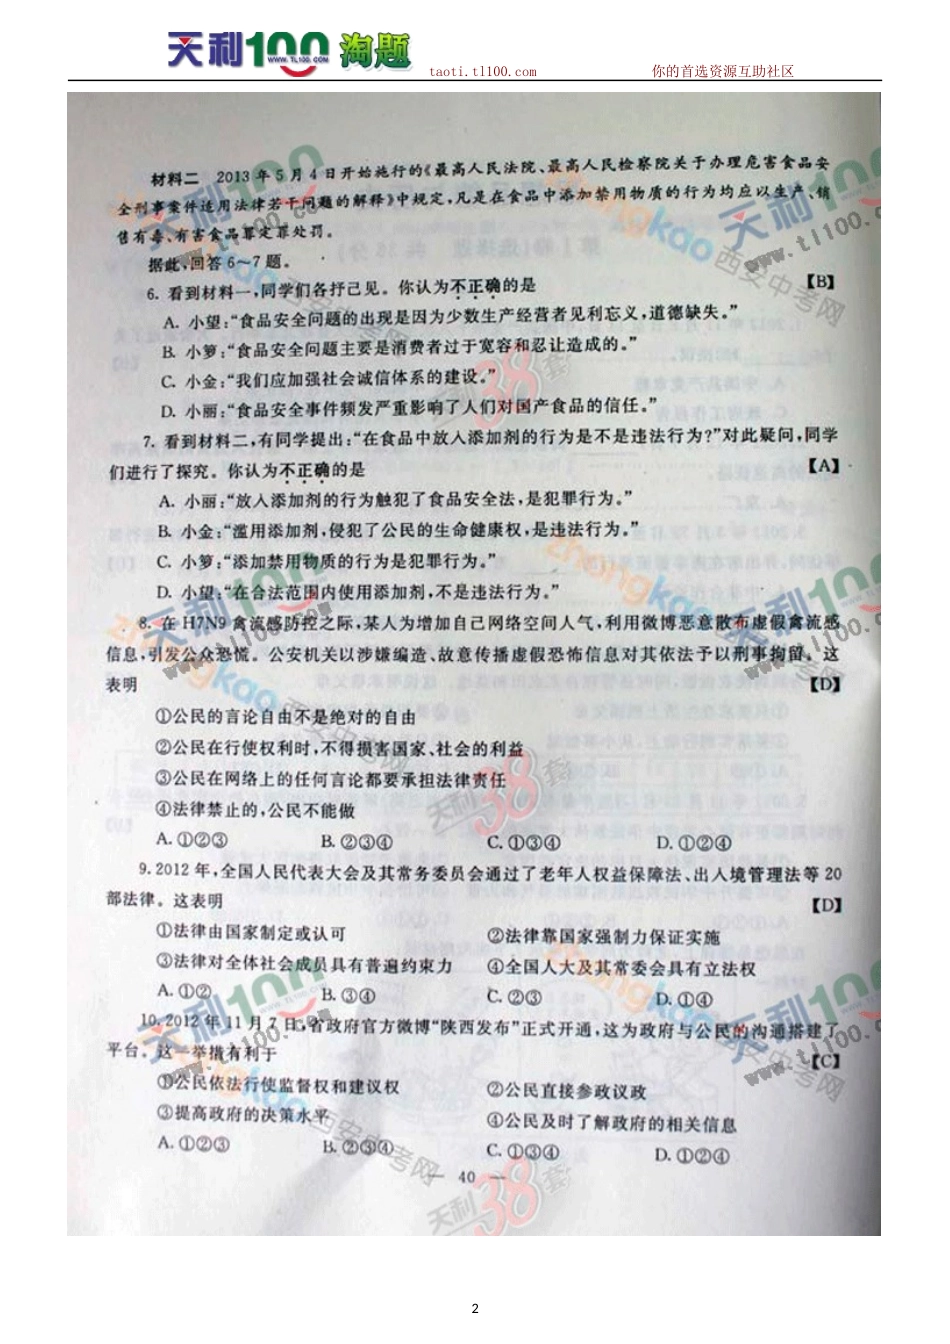 天利100 淘题
WWW.TL100.COM
taoti.tl100.com 你的首选资源互助社区
材料二 2013年5月4日开始施行的《最高人民法院、最高人民检察院关于办理危害食品安
全刑事案件适用法律若干问题的解释》中规定,凡是在食品中添加禁用物质的行为均应以生产、销
售有毒、有害食品罪定罪处罚。
据此,回答6～7题。
6. 看到材料一,同学们各抒己见。你认为不正确的是 【B】
A. 小望:“食品安全问题的出现是因为少数生产经营者见利忘义,道德缺失。”
B. 小萝:“食品安全问题主要是消费者过于宽容和忍让造成的。”
C. 小金:“我们应加强社会诚信体系的建设。”
D. 小丽:“食品安全事件频发严重影响了人们对国产食品的信任。”
7. 看到材料二,有同学提出:“在食品中放入添加剂的行为是不是违法行为?”对此疑问,同学
们进行了探究。你认为不正确的是 【A】
A. 小丽:“放入添加剂的行为触犯了食品安全法,是犯罪行为。”
B. 小金:“滥用添加剂,侵犯了公民的生命健康权,是违法行为。”
C. 小萝:“添加禁用物质的行为是犯罪行为。”
D. 小望:“在合法范围内使用添加剂,不是违法行为。”
8. 在H7N9禽流感防控之际,某人为增加自己网络空间人气,利用微博恶意散布虚假禽流感
信息,引发公众恐慌。公安机关以涉嫌编造、故意传播虚假恐怖信息对其依法予以刑事拘留。这
表明 【D】
①公民的言论自由不是绝对的自由
②公民在行使权利时,不得损害国家、社会的利益
③公民在网络上的任何言论都要承担法律责任
④法律禁止的,公民不能做
A. ①②③ B. ②③④ C. ①③④ D. ①②④
9. 2012年,全国人民代表大会及其常务委员会通过了老年人权益保障法、出入境管理法等20
部法律。这表明 【D】
①法律由国家制定或认可 ②法律靠国家强制力保证实施
③法律对全体社会成员具有普遍约束力 ④全国人大及其常委会具有立法权
A. ①② B. ③④ C. ②③ D. ①④
10. 2012年11月7日,省政府官方微博“陕西发布”正式开通,这为政府与公民的沟通搭建了
平台。这一举措有利于 【C】
①公民依法行使监督权和建议权 ②公民直接参政议政
③提高政府的决策水平 ④公民及时了解政府的相关信息
A. ①②③ B. ②③④ C. ①③④ D. ①②④
— 40 —
2